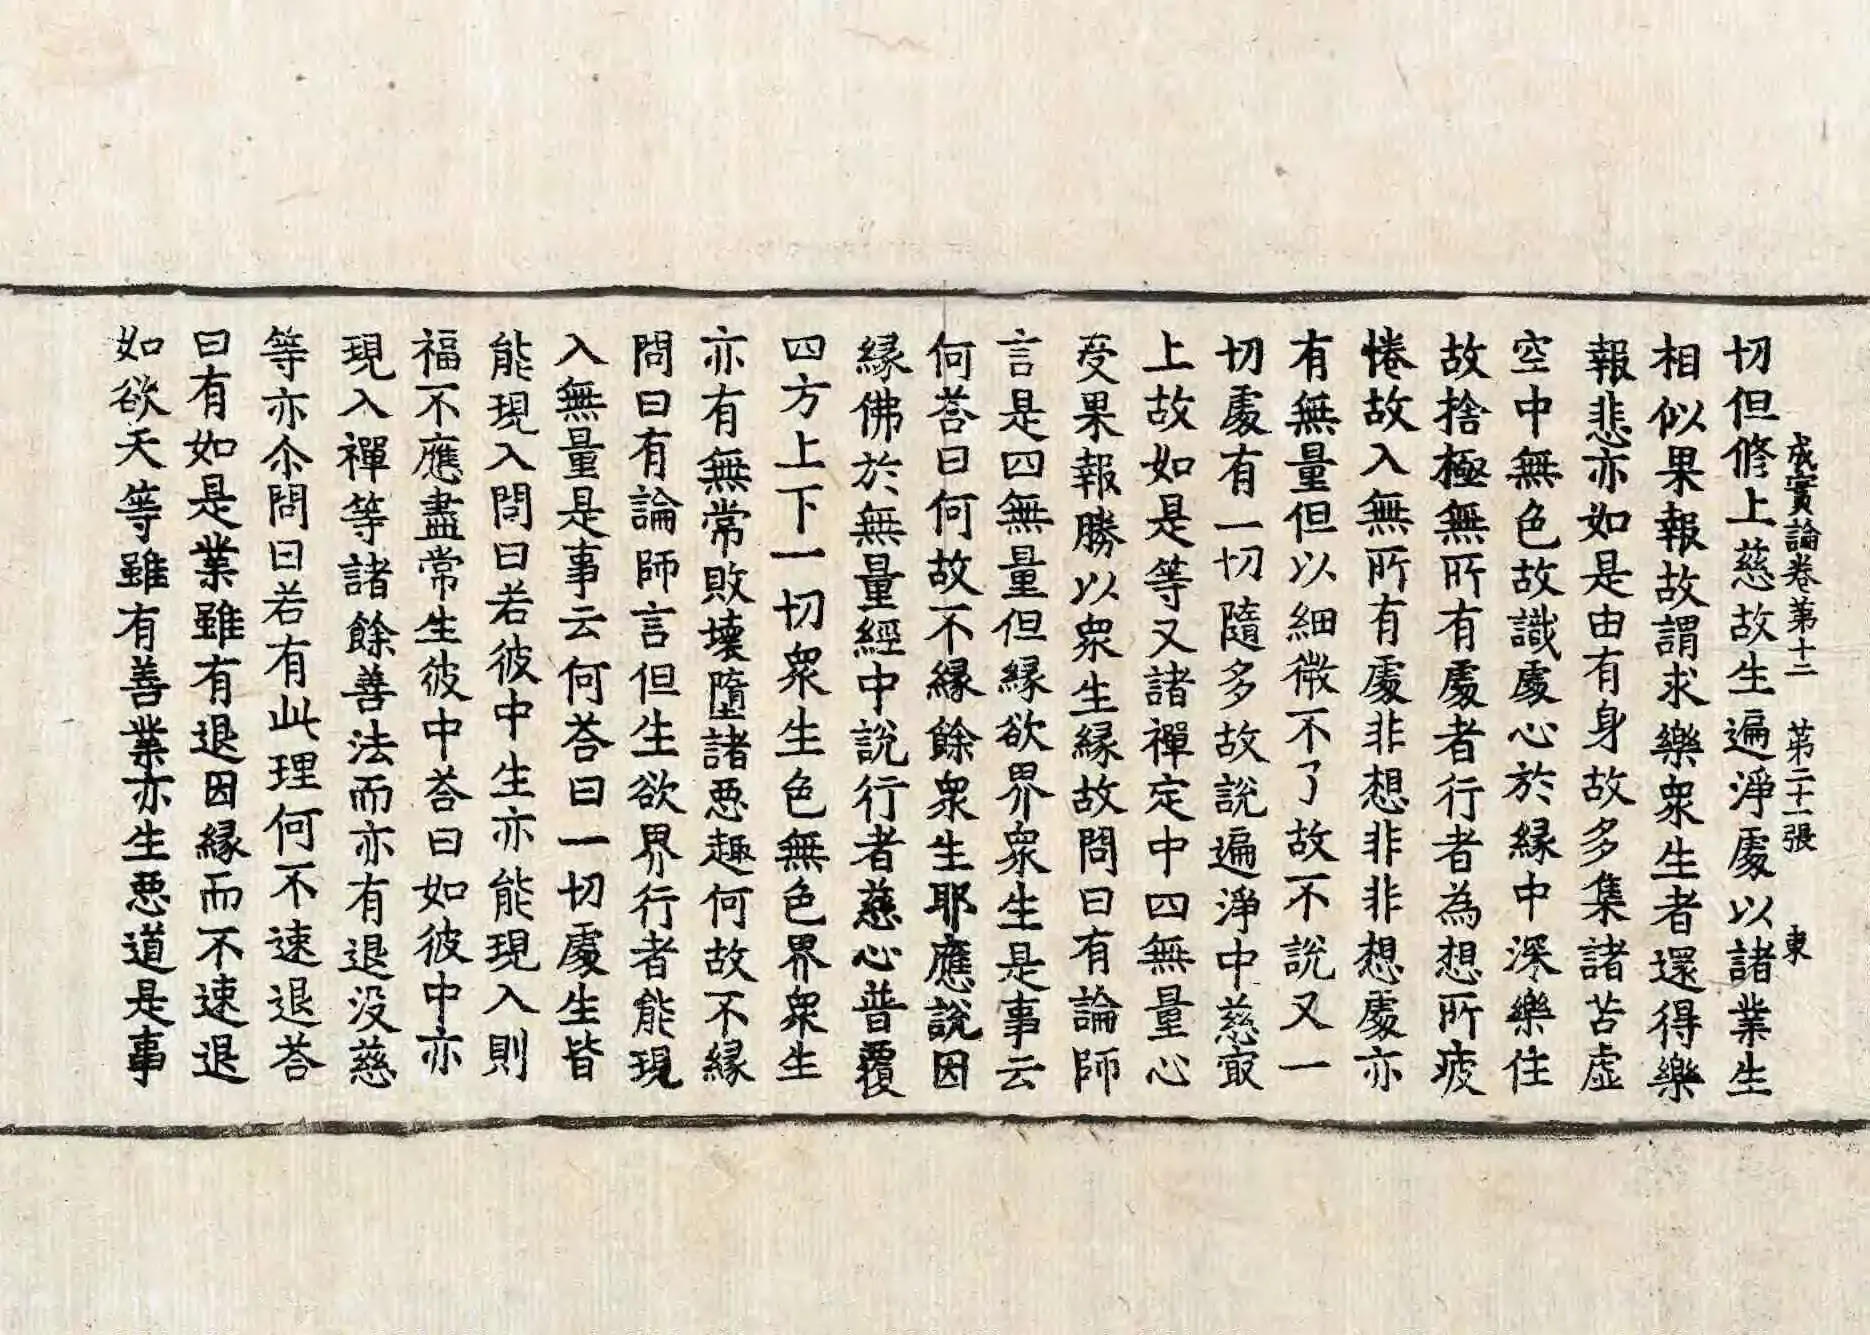 成實論卷第十二 第二十一張 東
切但修上慈故生遍淨處以諸業生
相似果報故謂求樂衆生者還得樂
報悲亦如是由有身故多集諸苦虛
空中無色故識處心於緣中深樂住
故捨極無所有處者行者為想所疲
惓故入無所有處非想非非想處亦
有無量但以細微不了故不說又一
切處有一切隨多故說遍淨中慈㝡
上故如是等又諸禪定中四無量心
受果報勝以衆生緣故問曰有論師
言是四無量但緣欲界衆生是事云
何荅曰何故不緣餘衆生耶應說因
緣佛於無量經中說行者慈心普覆
四方上下一切衆生色無色界衆生
亦有無常敗壞墮諸惡趣何故不緣
問曰有論師言但生欲界行者能現
入無量是事云何荅曰一切處生皆
能現入問曰若彼中生亦能現入則
福不應盡常生彼中荅曰如彼中亦
現入禪等諸餘善法而亦有退没慈
等亦尒問曰若有此理何不速退荅
曰有如是業雖有退因緣而不速退
如欲天等雖有善業亦生惡道是事